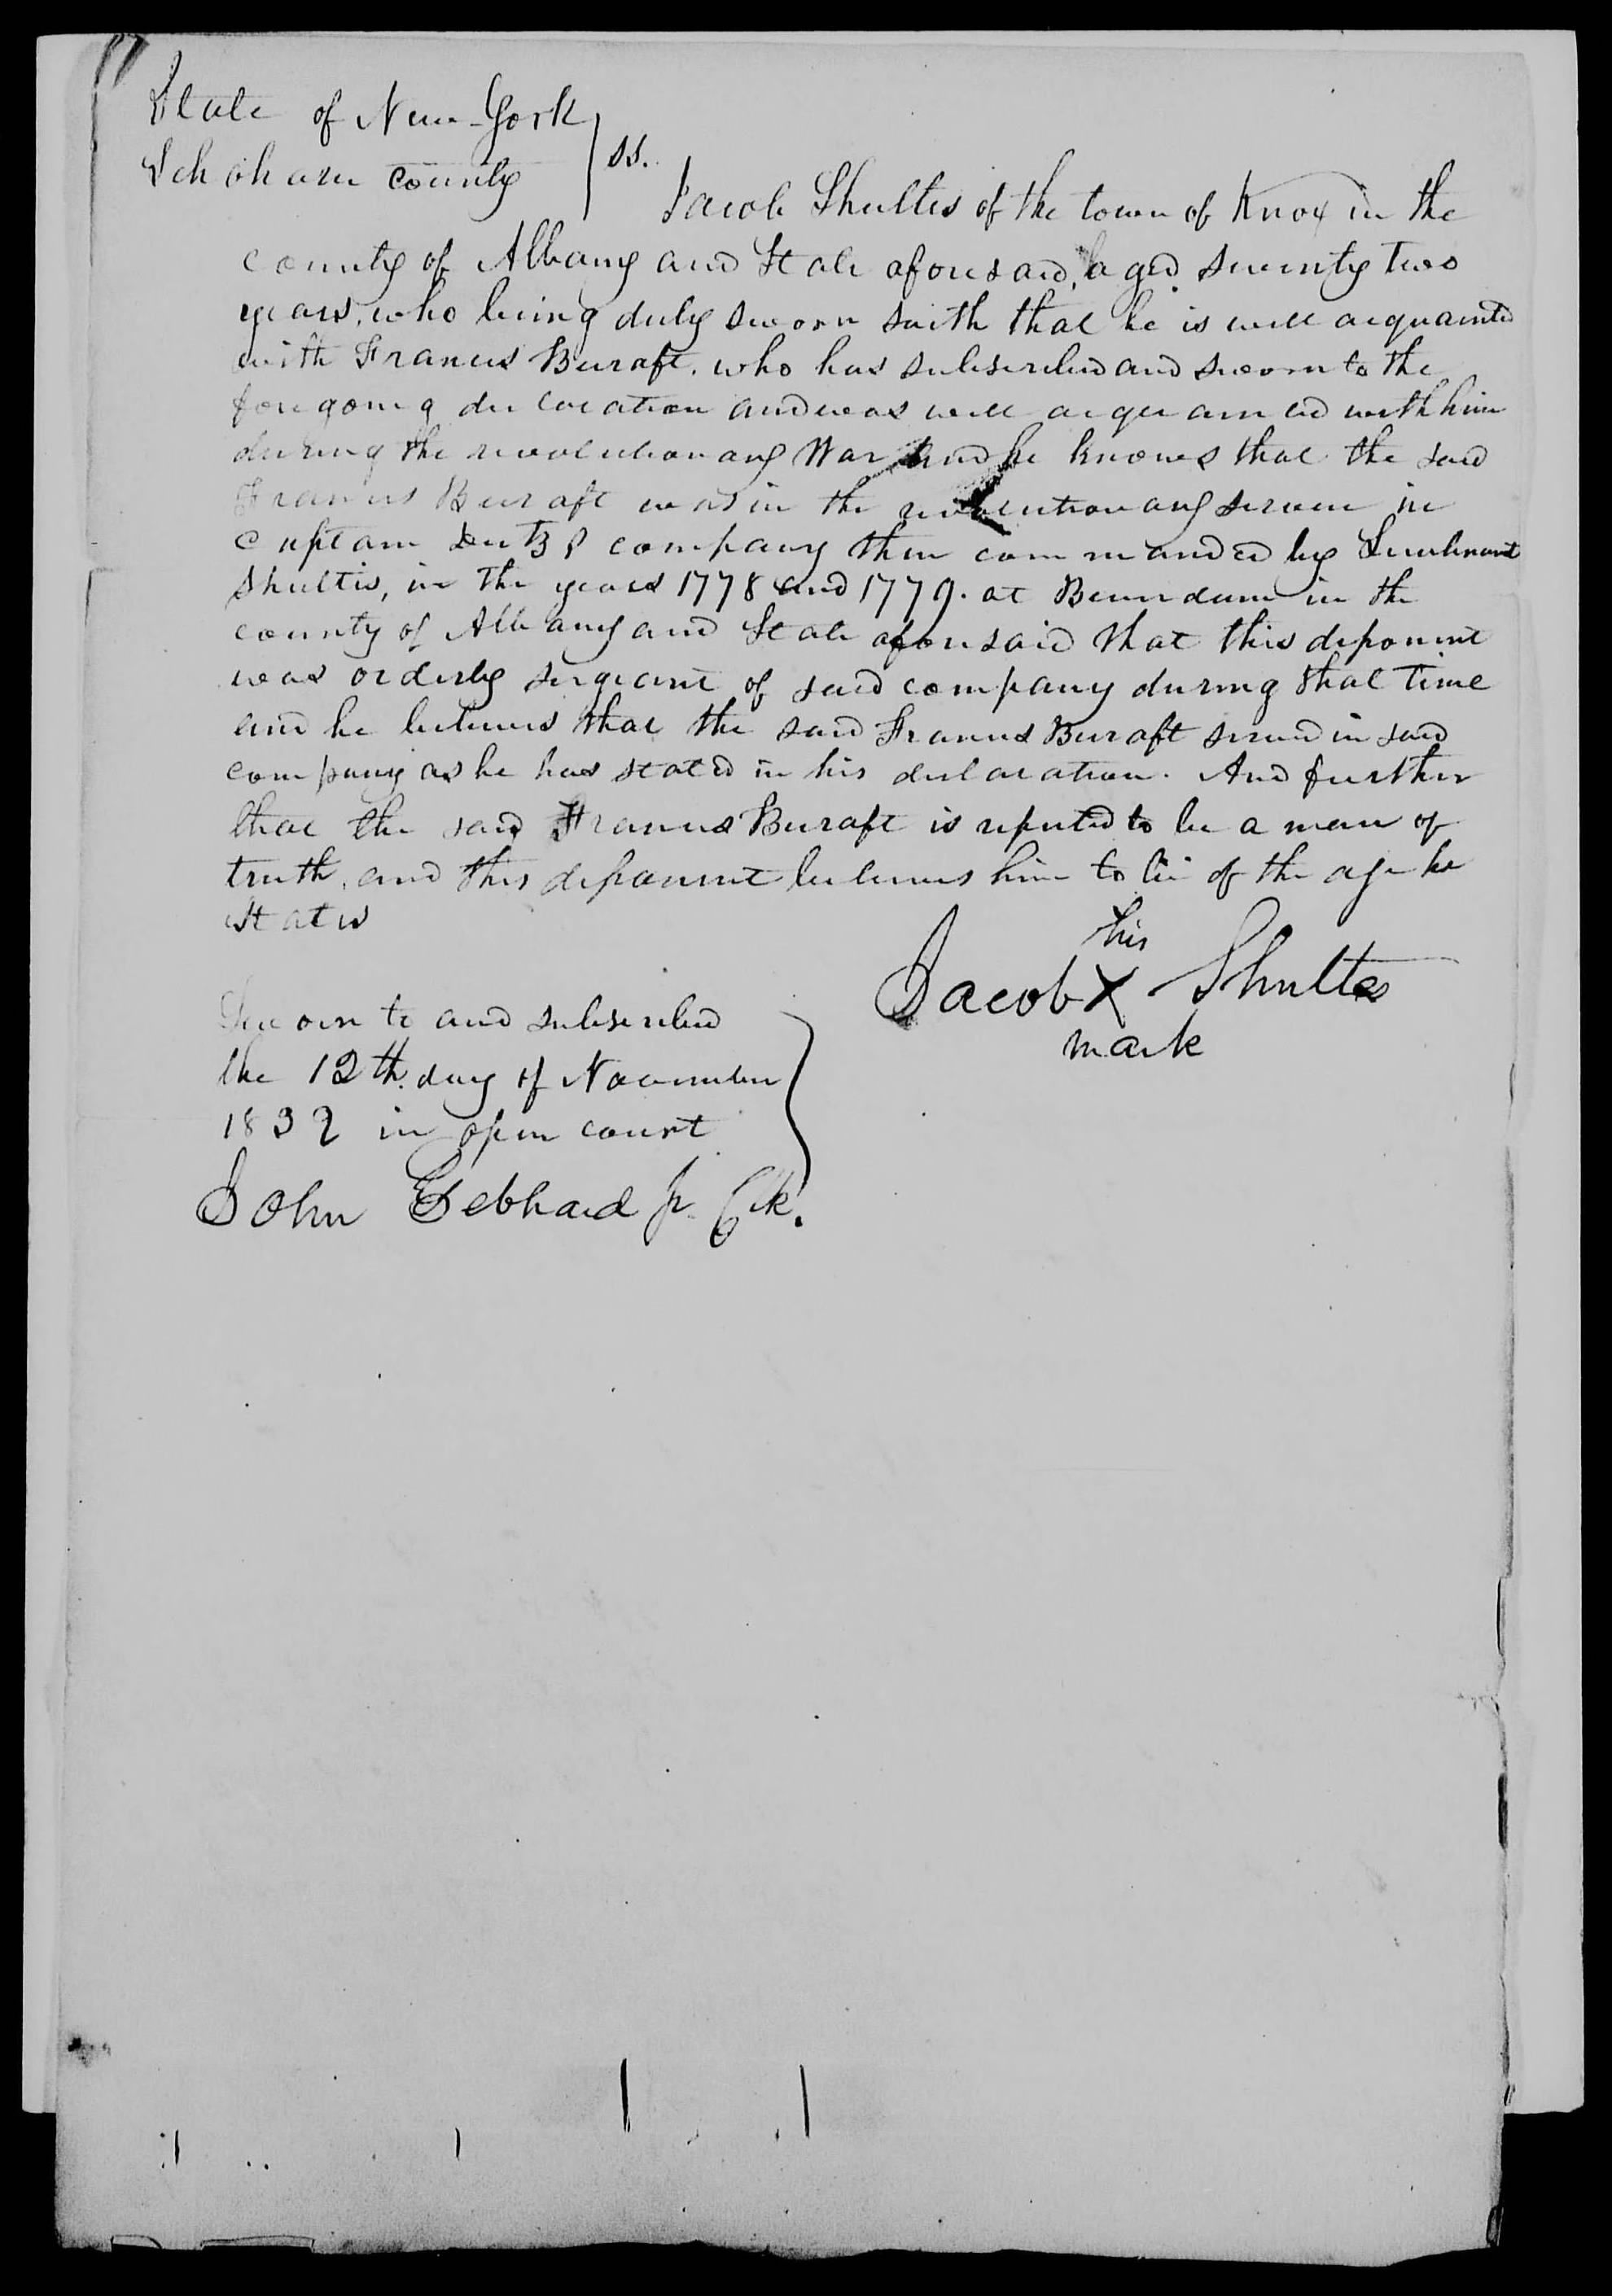 State of New-York
Schoharie County ss.
Jacob Shultes of the town of Knox in the
county of Albany and State aforesaid, aged seventy two
years, who being duly sworn saith that he is well acquainted
with Francis Becraft. who has subscribed and sworn to the
foregoing declaration and was well acquainted with him
during the revolutionary War and he knows that the said
Francis Becraft was in the revolutionary service in
Captain Deitz's company then commanded by Lieutenant
Shultis, in the years 1778 and 1779. at Beaverdam in the
county of Albany and State aforesaid that this deponent
was orderly sergeant of said company during that time
and he believes that the said Francis Becraft served in said
company as he has stated in his declaration. And further
that the said Francis Becraft is reputed to be a man of
truth, and this deponent believes him to be of the age he
states
his
Jacob X Shultes
mark
Sworn to and subscribed
the 12th. day of November
1832 in open court
John Gebhard Jr. Clk.